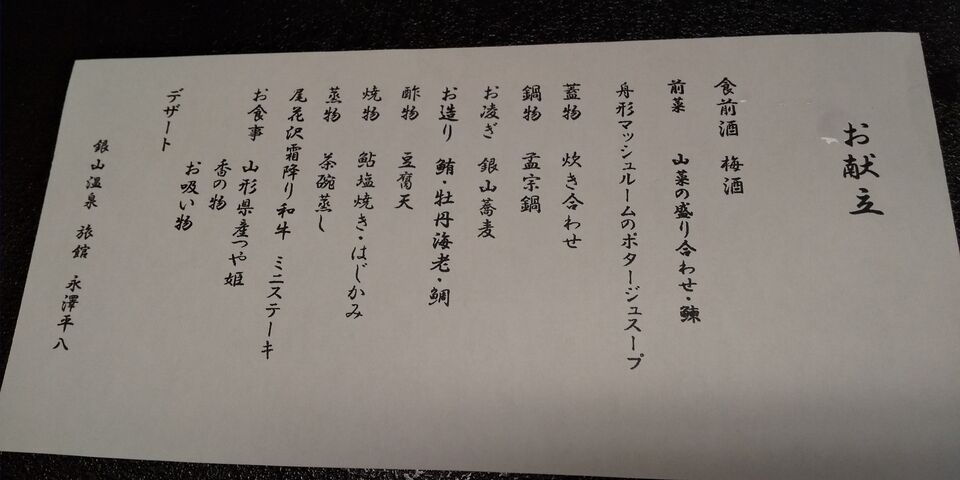 お献立
食前酒 梅酒
前菜 山菜の盛り合わせ・鰊
舟形マッシュルームのポタージュスープ
蓋物 炊き合わせ
鍋物 孟宗鍋
お凌ぎ 銀山蕎麦
お造り 鮪・牡丹海老・鯛
酢物 豆腐天
焼物 鮎塩焼き・はじかみ
蒸物 茶碗蒸し
尾花沢霜降り和牛 ミニステーキ
お食事 山形県産つや姫
香の物
お吸い物
デザート
銀山温泉 旅館 永澤平八